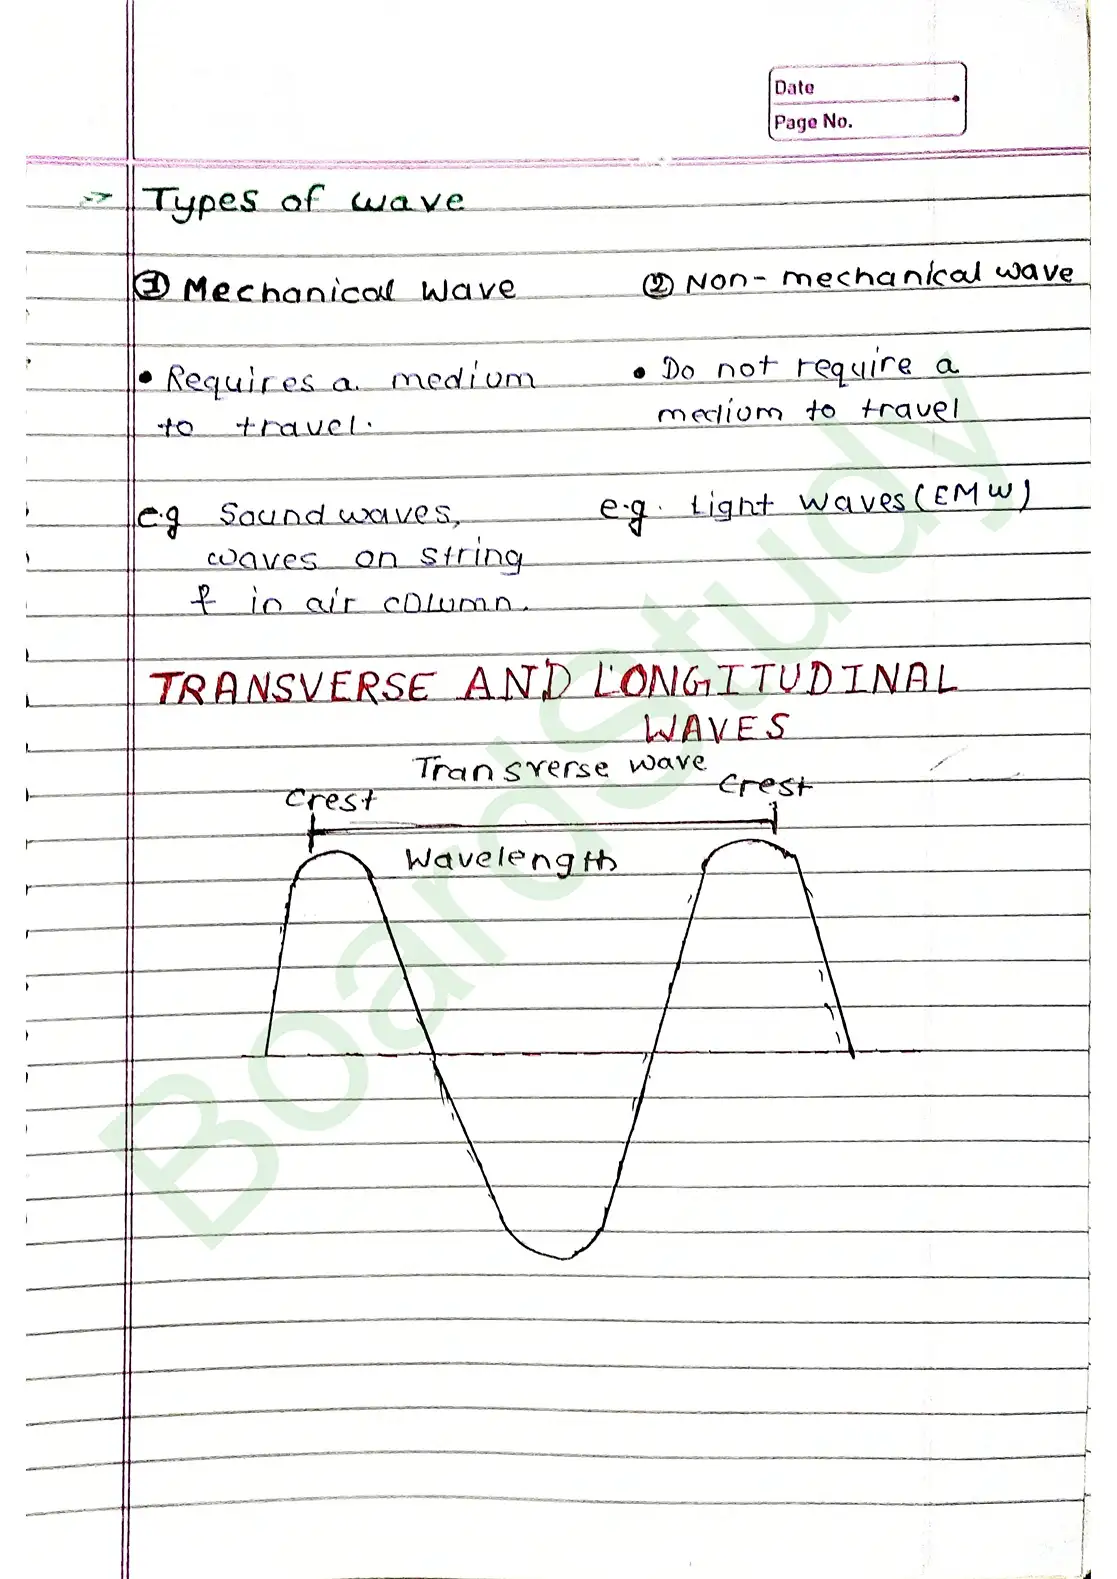 Date
Page No.
Types of wave
① Mechanical Wave
② Non-mechanical wave
• Requires a medium
to travel.
• Do not require a
medium to travel
e.g Sound waves,
waves on string
& in air column.
e.g. Light waves (EMW)
TRANSVERSE AND LONGITUDINAL
WAVES
Transverse wave
Crest
Crest
Wavelength
BoardStudy